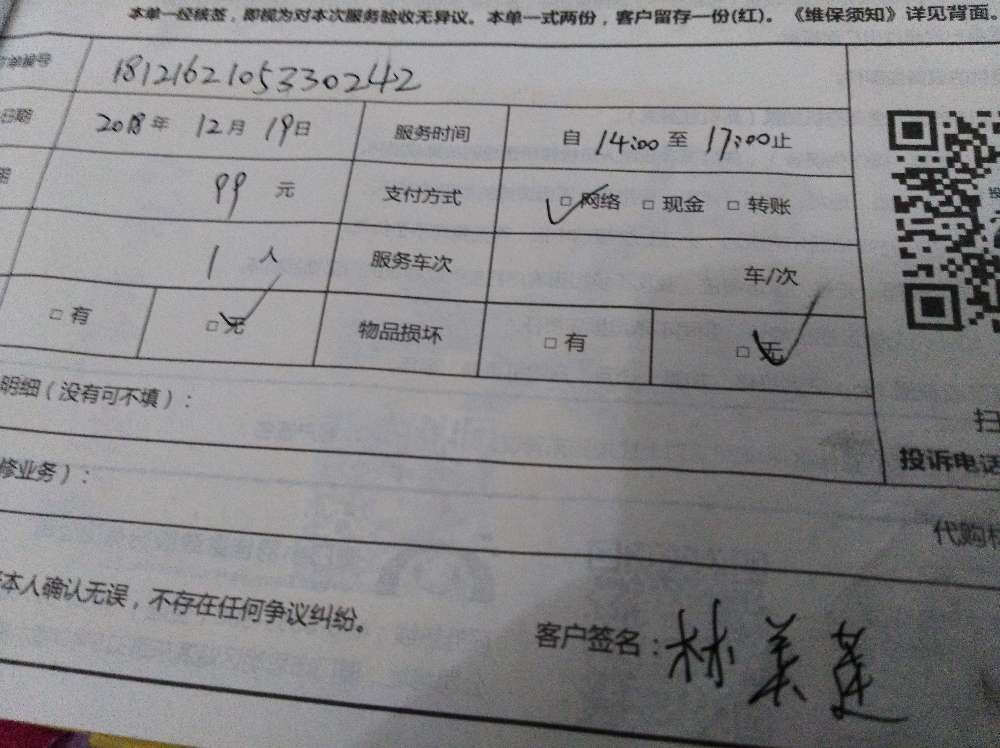 本单一经核签，即视为对本次服务验收无异议。本单一式两份，客户留存一份(红)。《维保须知》详见背面。
订单编号 181216210533O242
日期 2018年 12月 19日 服务时间 自 14:00 至 17:00止
99 元 支付方式 □ 网络 □ 现金 □ 转账
1 人 服务车次 车/次
□ 有 □ 无 物品损坏 □ 有 □ 无
明细（没有可不填）：
扫
投诉电话
修业务）：
代购
本人确认无误，不存在任何争议纠纷。
客户签名：林美莲